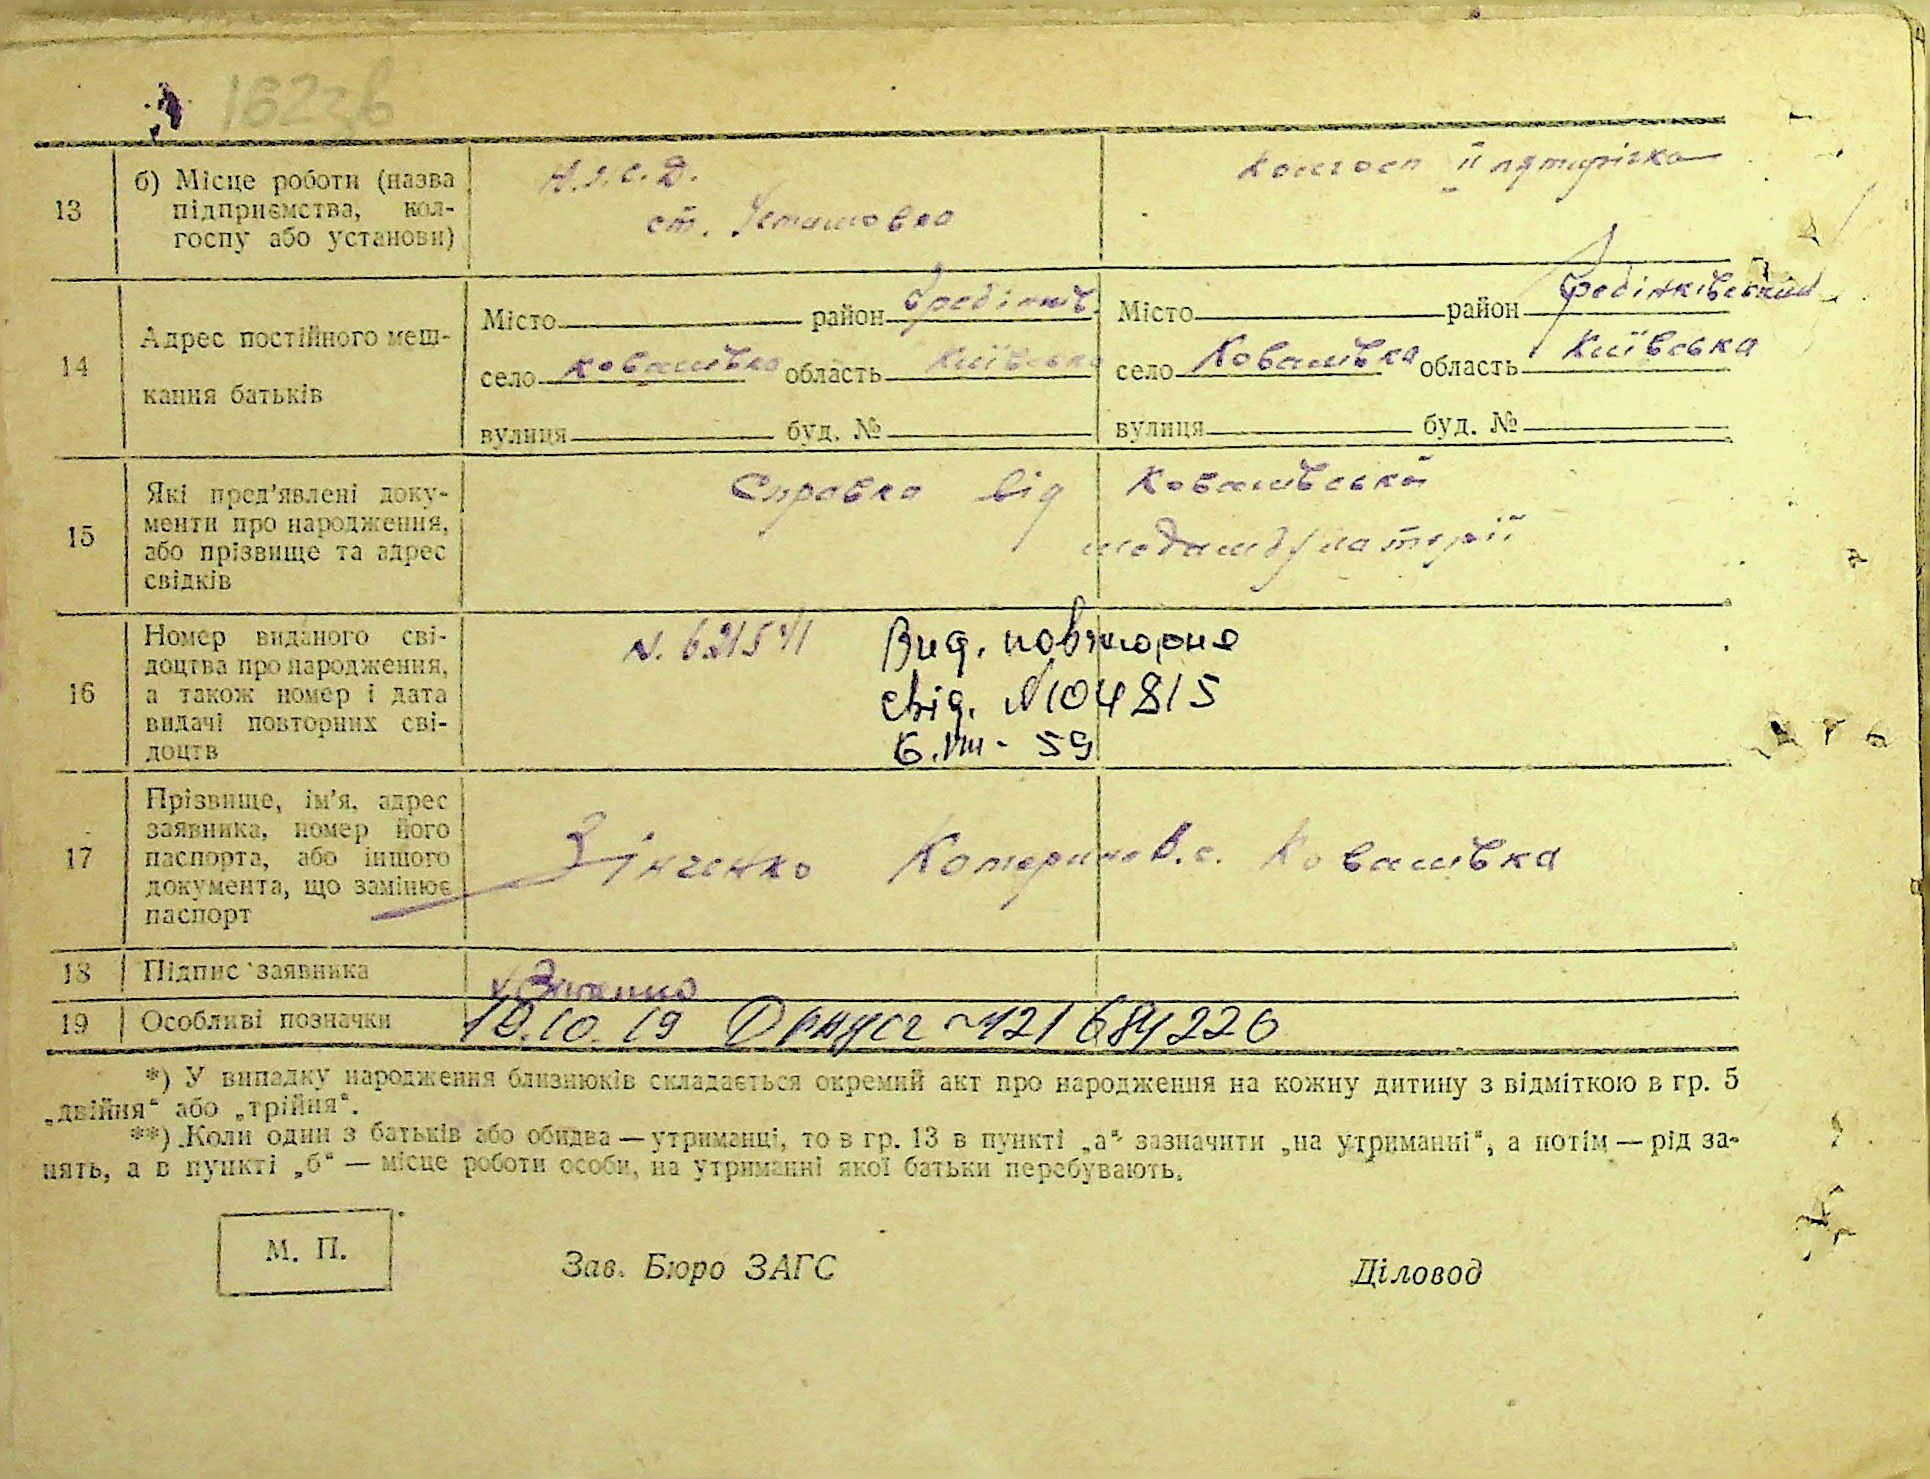 162зв
13 б) Місце роботи (назва підприємства, кол-
госпу або установи)
ст. Устимовка
Колгосп ІІ пятирічка
14 Адрес постійного меш-
кання батьків
Місто район Гребінків.
село Ковалівка область Київська
вулиця буд. №
Місто район Гребінківський
село Ковалівка область Київська
вулиця буд. №
15 Які пред'явлені доку-
менти про народження,
або прізвище та адрес
свідків
Справка від Ковалівської
16 Номер виданого сві-
доцтва про народження,
а також номер і дата
видачі повторних сві-
доцтв
Вид. повторне
свід. №104815
6.VIII - 59
17 Прізвище, ім'я, адрес
заявника, номер його
паспорта, або іншого
документа, що замінює
паспорт
Зінченко Катерина В. с. Ковалівка
18 Підпис заявника
Зінченко
19 Особливі позначки
10.10.19
*) У випадку народження близнюків складається окремий акт про народження на кожну дитину з відміткою в гр. 5
„двійня“ або „трійня“.
**) Коли один з батьків або обидва — утриманці, то в гр. 13 в пункті „а“ зазначити „на утриманні“, а потім — рід за-
нять, а в пункті „б“ — місце роботи особи, на утриманні якої батьки перебувають.
М. П.
Зав. Бюро ЗАГС
Діловод